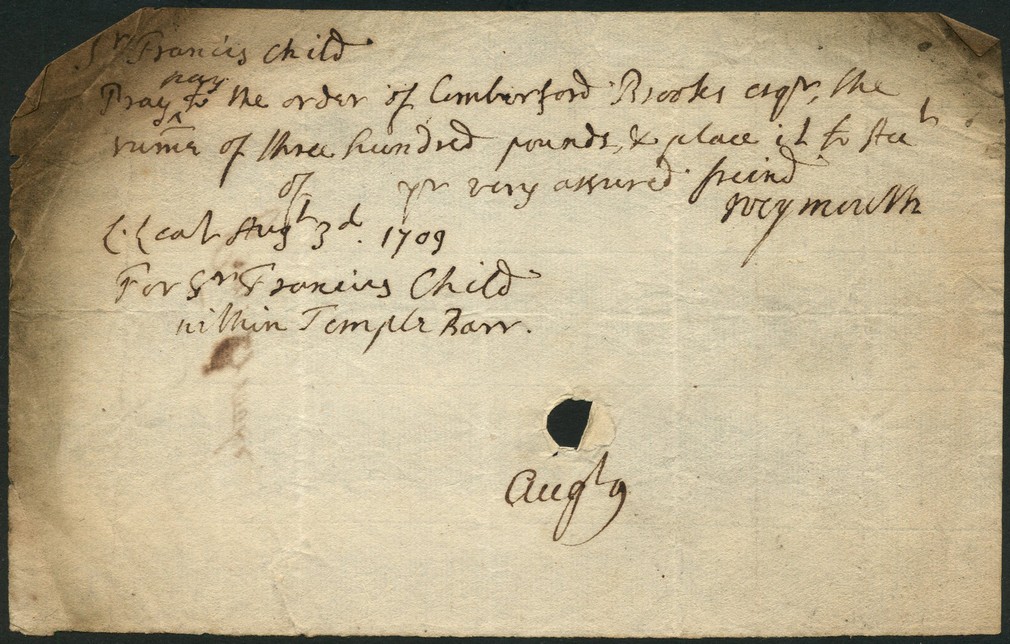 Sr Francis Child
Pray ^pay to the order of Comberford Brooks esqr, the
summe of three hundred pounds, & place it to Acct
of yr very assured freind
Weymouth
Leat Augt 3d. 1709
For Sr Francis Child
within Temple Barr.
Augt 9